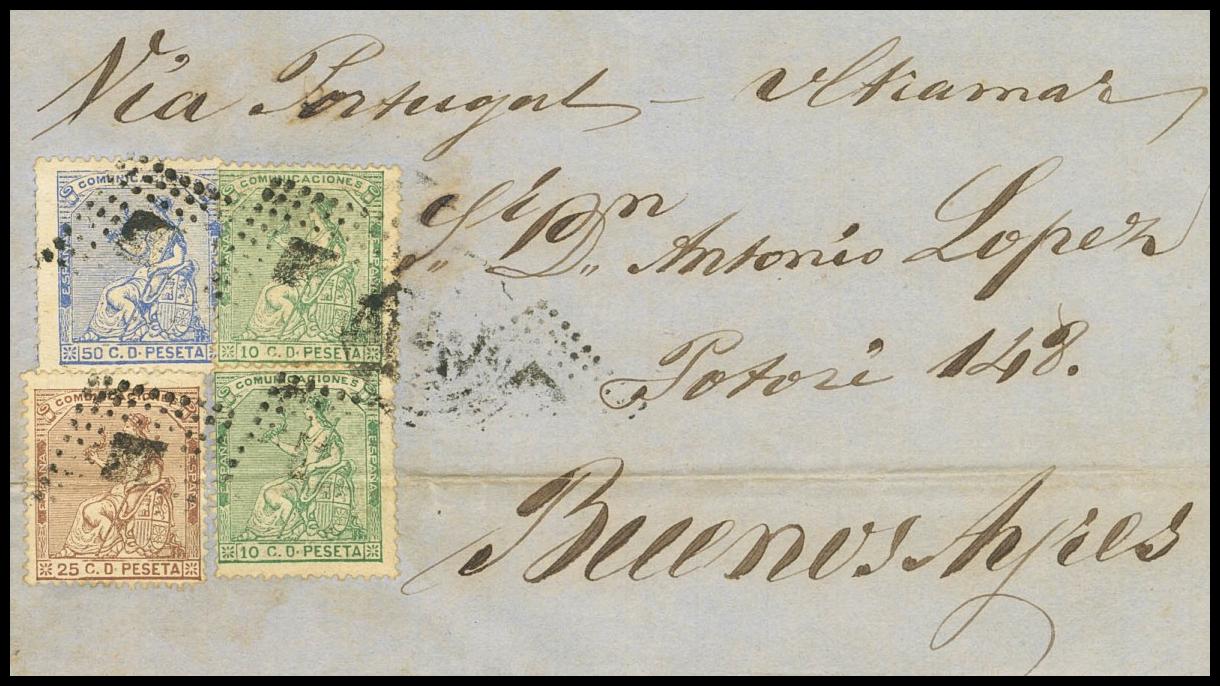 Via Portugal – Ultramar
Sr Dn Antonio Lopez
Potosi 148.
Buenos Ayres
COMUNICACIONES
ESPAÑA
50 C. D. PESETA
COMUNICACIONES
ESPAÑA
10 C. D. PESETA
COMUNICACIONES
ESPAÑA ESPAÑA
25 C. D. PESETA
COMUNICACIONES
ESPAÑA ESPAÑA
10 C. D. PESETA